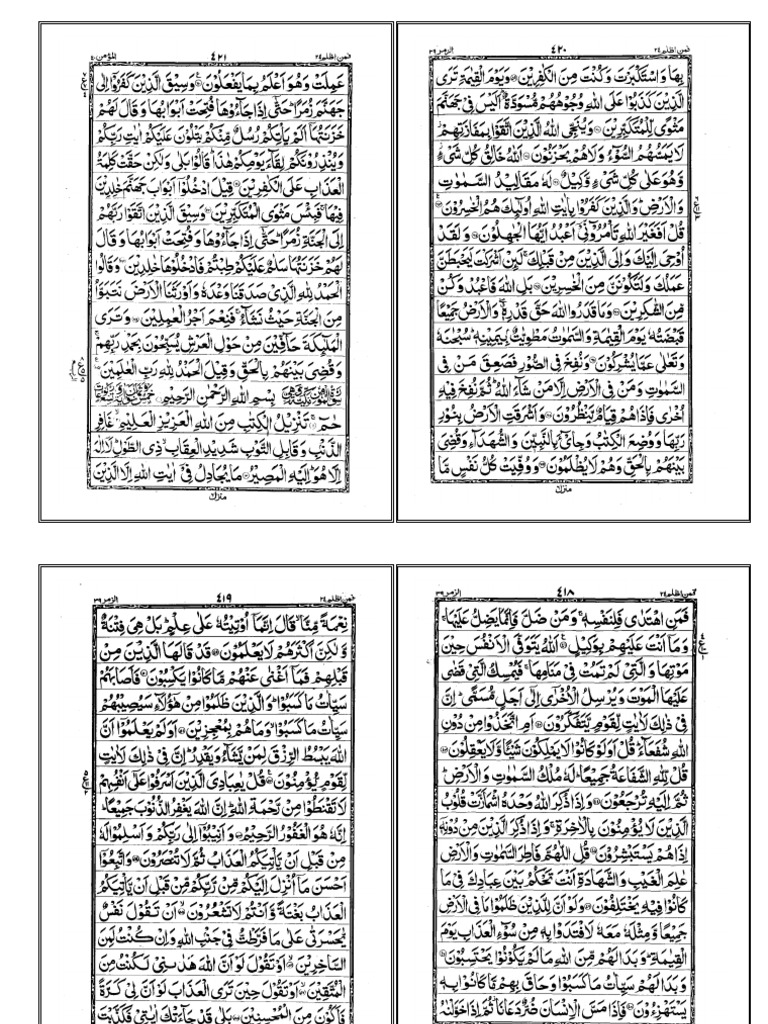 فمن اظلم ٢٤ ٤٢٠ الزمر ٣٩
بِهَا وَاسْتَكْبَرْتَ وَكُنْتَ مِنَ الْكٰفِرِيْنَ وَيَوْمَ الْقِيٰمَةِ تَرَى
الَّذِيْنَ كَذَبُوْا عَلَى اللهِ وُجُوْهُهُمْ مُّسْوَدَّةٌ اَلَيْسَ فِيْ جَهَنَّمَ
مَثْوًى لِّلْمُتَكَبِّرِيْنَ وَيُنَجِّى اللهُ الَّذِيْنَ اتَّقَوْا بِمَفَازَتِهِمْ
لَا يَمَسُّهُمُ السُّوْٓءُ وَلَا هُمْ يَحْزَنُوْنَ اَللهُ خَالِقُ كُلِّ شَيْءٍ
وَّهُوَ عَلٰى كُلِّ شَيْءٍ وَّكِيْلٌ لَهٗ مَقَالِيْدُ السَّمٰوٰتِ
وَالْاَرْضِ وَالَّذِيْنَ كَفَرُوْا بِاٰيٰتِ اللهِ اُولٰٓئِكَ هُمُ الْخٰسِرُوْنَ
قُلْ اَفَغَيْرَ اللهِ تَاْمُرُوْٓنِّيْ اَعْبُدُ اَيُّهَا الْجٰهِلُوْنَ وَلَقَدْ
اُوْحِيَ اِلَيْكَ وَاِلَى الَّذِيْنَ مِنْ قَبْلِكَ لَئِنْ اَشْرَكْتَ لَيَحْبَطَنَّ
عَمَلُكَ وَلَتَكُوْنَنَّ مِنَ الْخٰسِرِيْنَ بَلِ اللهَ فَاعْبُدْ وَكُنْ
مِّنَ الشّٰكِرِيْنَ وَمَا قَدَرُوا اللهَ حَقَّ قَدْرِهٖ وَالْاَرْضُ جَمِيْعًا
قَبْضَتُهٗ يَوْمَ الْقِيٰمَةِ وَالسَّمٰوٰتُ مَطْوِيّٰتٌ بِيَمِيْنِهٖ سُبْحٰنَهٗ
وَتَعٰلٰى عَمَّا يُشْرِكُوْنَ وَنُفِخَ فِي الصُّوْرِ فَصَعِقَ مَنْ فِي
السَّمٰوٰتِ وَمَنْ فِي الْاَرْضِ اِلَّا مَنْ شَآءَ اللهُ ثُمَّ نُفِخَ فِيْهِ
اُخْرٰى فَاِذَا هُمْ قِيَامٌ يَّنْظُرُوْنَ وَاَشْرَقَتِ الْاَرْضُ بِنُوْرِ
رَبِّهَا وَوُضِعَ الْكِتٰبُ وَجِايْٓءَ بِالنَّبِيّٖنَ وَالشُّهَدَآءِ وَقُضِيَ
بَيْنَهُمْ بِالْحَقِّ وَهُمْ لَا يُظْلَمُوْنَ وَوُفِّيَتْ كُلُّ نَفْسٍ مَّا
منزل
فمن اظلم ٢٤ ٤٢١ المؤمن ٤٠
عَمِلَتْ وَهُوَ اَعْلَمُ بِمَا يَفْعَلُوْنَ وَسِيْقَ الَّذِيْنَ كَفَرُوْٓا اِلٰى
جَهَنَّمَ زُمَرًا حَتّٰى اِذَا جَآءُوْهَا فُتِحَتْ اَبْوَابُهَا وَقَالَ لَهُمْ
خَزَنَتُهَآ اَلَمْ يَاْتِكُمْ رُسُلٌ مِّنْكُمْ يَتْلُوْنَ عَلَيْكُمْ اٰيٰتِ رَبِّكُمْ
وَيُنْذِرُوْنَكُمْ لِقَآءَ يَوْمِكُمْ هٰذَا قَالُوْا بَلٰى وَلٰكِنْ حَقَّتْ كَلِمَةُ
الْعَذَابِ عَلَى الْكٰفِرِيْنَ قِيْلَ ادْخُلُوْٓا اَبْوَابَ جَهَنَّمَ خٰلِدِيْنَ
فِيْهَا فَبِئْسَ مَثْوَى الْمُتَكَبِّرِيْنَ وَسِيْقَ الَّذِيْنَ اتَّقَوْا رَبَّهُمْ
اِلَى الْجَنَّةِ زُمَرًا حَتّٰى اِذَا جَآءُوْهَا وَفُتِحَتْ اَبْوَابُهَا وَقَالَ
لَهُمْ خَزَنَتُهَا سَلٰمٌ عَلَيْكُمْ طِبْتُمْ فَادْخُلُوْهَا خٰلِدِيْنَ وَقَالُوا
الْحَمْدُ لِلّٰهِ الَّذِيْ صَدَقَنَا وَعْدَهٗ وَاَوْرَثَنَا الْاَرْضَ نَتَبَوَّاُ
مِنَ الْجَنَّةِ حَيْثُ نَشَآءُ فَنِعْمَ اَجْرُ الْعٰمِلِيْنَ وَتَرَى
الْمَلٰٓئِكَةَ حَآفِّيْنَ مِنْ حَوْلِ الْعَرْشِ يُسَبِّحُوْنَ بِحَمْدِ رَبِّهِمْ
وَقُضِيَ بَيْنَهُمْ بِالْحَقِّ وَقِيْلَ الْحَمْدُ لِلّٰهِ رَبِّ الْعٰلَمِيْنَ
بِسْمِ اللهِ الرَّحْمٰنِ الرَّحِيْمِ
حٰمٓ تَنْزِيْلُ الْكِتٰبِ مِنَ اللهِ الْعَزِيْزِ الْعَلِيْمِ غَافِرِ
الذَّنْۢبِ وَقَابِلِ التَّوْبِ شَدِيْدِ الْعِقَابِ ذِي الطَّوْلِ لَآ اِلٰهَ
اِلَّا هُوَ اِلَيْهِ الْمَصِيْرُ مَا يُجَادِلُ فِيْٓ اٰيٰتِ اللهِ اِلَّا الَّذِيْنَ
منزل
فمن اظلم ٢٤ ٤١٨ الزمر ٣٩
فَمَنِ اهْتَدٰى فَلِنَفْسِهٖ وَمَنْ ضَلَّ فَاِنَّمَا يَضِلُّ عَلَيْهَا
وَمَآ اَنْتَ عَلَيْهِمْ بِوَكِيْلٍ اَللهُ يَتَوَفَّى الْاَنْفُسَ حِيْنَ
مَوْتِهَا وَالَّتِيْ لَمْ تَمُتْ فِيْ مَنَامِهَا فَيُمْسِكُ الَّتِيْ قَضٰى
عَلَيْهَا الْمَوْتَ وَيُرْسِلُ الْاُخْرٰٓى اِلٰٓى اَجَلٍ مُّسَمًّى اِنَّ
فِيْ ذٰلِكَ لَاٰيٰتٍ لِّقَوْمٍ يَّتَفَكَّرُوْنَ اَمِ اتَّخَذُوْا مِنْ دُوْنِ
اللهِ شُفَعَآءَ قُلْ اَوَلَوْ كَانُوْا لَا يَمْلِكُوْنَ شَيْئًا وَّلَا يَعْقِلُوْنَ
قُلْ لِّلّٰهِ الشَّفَاعَةُ جَمِيْعًا لَهٗ مُلْكُ السَّمٰوٰتِ وَالْاَرْضِ
ثُمَّ اِلَيْهِ تُرْجَعُوْنَ وَاِذَا ذُكِرَ اللهُ وَحْدَهُ اشْمَاَزَّتْ قُلُوْبُ
الَّذِيْنَ لَا يُؤْمِنُوْنَ بِالْاٰخِرَةِ وَاِذَا ذُكِرَ الَّذِيْنَ مِنْ دُوْنِهٖٓ
اِذَا هُمْ يَسْتَبْشِرُوْنَ قُلِ اللّٰهُمَّ فَاطِرَ السَّمٰوٰتِ وَالْاَرْضِ
عٰلِمَ الْغَيْبِ وَالشَّهَادَةِ اَنْتَ تَحْكُمُ بَيْنَ عِبَادِكَ فِيْ مَا
كَانُوْا فِيْهِ يَخْتَلِفُوْنَ وَلَوْ اَنَّ لِلَّذِيْنَ ظَلَمُوْا مَا فِي الْاَرْضِ
جَمِيْعًا وَّمِثْلَهٗ مَعَهٗ لَافْتَدَوْا بِهٖ مِنْ سُوْٓءِ الْعَذَابِ يَوْمَ
الْقِيٰمَةِ وَبَدَا لَهُمْ مِّنَ اللهِ مَا لَمْ يَكُوْنُوْا يَحْتَسِبُوْنَ
وَبَدَا لَهُمْ سَيِّاٰتُ مَا كَسَبُوْا وَحَاقَ بِهِمْ مَّا كَانُوْا بِهٖ
يَسْتَهْزِءُوْنَ فَاِذَا مَسَّ الْاِنْسَانَ ضُرٌّ دَعَانَا ثُمَّ اِذَا خَوَّلْنٰهُ
فمن اظلم ٢٤ ٤١٩ الزمر ٣٩
نِعْمَةً مِّنَّا قَالَ اِنَّمَآ اُوْتِيْتُهٗ عَلٰى عِلْمٍ بَلْ هِيَ فِتْنَةٌ
وَّلٰكِنَّ اَكْثَرَهُمْ لَا يَعْلَمُوْنَ قَدْ قَالَهَا الَّذِيْنَ مِنْ
قَبْلِهِمْ فَمَآ اَغْنٰى عَنْهُمْ مَّا كَانُوْا يَكْسِبُوْنَ فَاَصَابَهُمْ
سَيِّاٰتُ مَا كَسَبُوْا وَالَّذِيْنَ ظَلَمُوْا مِنْ هٰٓؤُلَآءِ سَيُصِيْبُهُمْ
سَيِّاٰتُ مَا كَسَبُوْا وَمَا هُمْ بِمُعْجِزِيْنَ اَوَلَمْ يَعْلَمُوْٓا اَنَّ
اللهَ يَبْسُطُ الرِّزْقَ لِمَنْ يَّشَآءُ وَيَقْدِرُ اِنَّ فِيْ ذٰلِكَ لَاٰيٰتٍ
لِّقَوْمٍ يُّؤْمِنُوْنَ قُلْ يٰعِبَادِيَ الَّذِيْنَ اَسْرَفُوْا عَلٰٓى اَنْفُسِهِمْ
لَا تَقْنَطُوْا مِنْ رَّحْمَةِ اللهِ اِنَّ اللهَ يَغْفِرُ الذُّنُوْبَ جَمِيْعًا
اِنَّهٗ هُوَ الْغَفُوْرُ الرَّحِيْمُ وَاَنِيْبُوْٓا اِلٰى رَبِّكُمْ وَاَسْلِمُوْا لَهٗ
مِنْ قَبْلِ اَنْ يَّاْتِيَكُمُ الْعَذَابُ ثُمَّ لَا تُنْصَرُوْنَ وَاتَّبِعُوْٓا
اَحْسَنَ مَآ اُنْزِلَ اِلَيْكُمْ مِّنْ رَّبِّكُمْ مِّنْ قَبْلِ اَنْ يَّاْتِيَكُمُ
الْعَذَابُ بَغْتَةً وَّاَنْتُمْ لَا تَشْعُرُوْنَ اَنْ تَقُوْلَ نَفْسٌ
يّٰحَسْرَتٰى عَلٰى مَا فَرَّطْتُّ فِيْ جَنْۢبِ اللهِ وَاِنْ كُنْتُ لَمِنَ
السّٰخِرِيْنَ اَوْ تَقُوْلَ لَوْ اَنَّ اللهَ هَدٰىنِيْ لَكُنْتُ مِنَ
الْمُتَّقِيْنَ اَوْ تَقُوْلَ حِيْنَ تَرَى الْعَذَابَ لَوْ اَنَّ لِيْ كَرَّةً
فَاَكُوْنَ مِنَ الْمُحْسِنِيْنَ بَلٰى قَدْ جَآءَتْكَ اٰيٰتِيْ فَكَذَّبْتَ